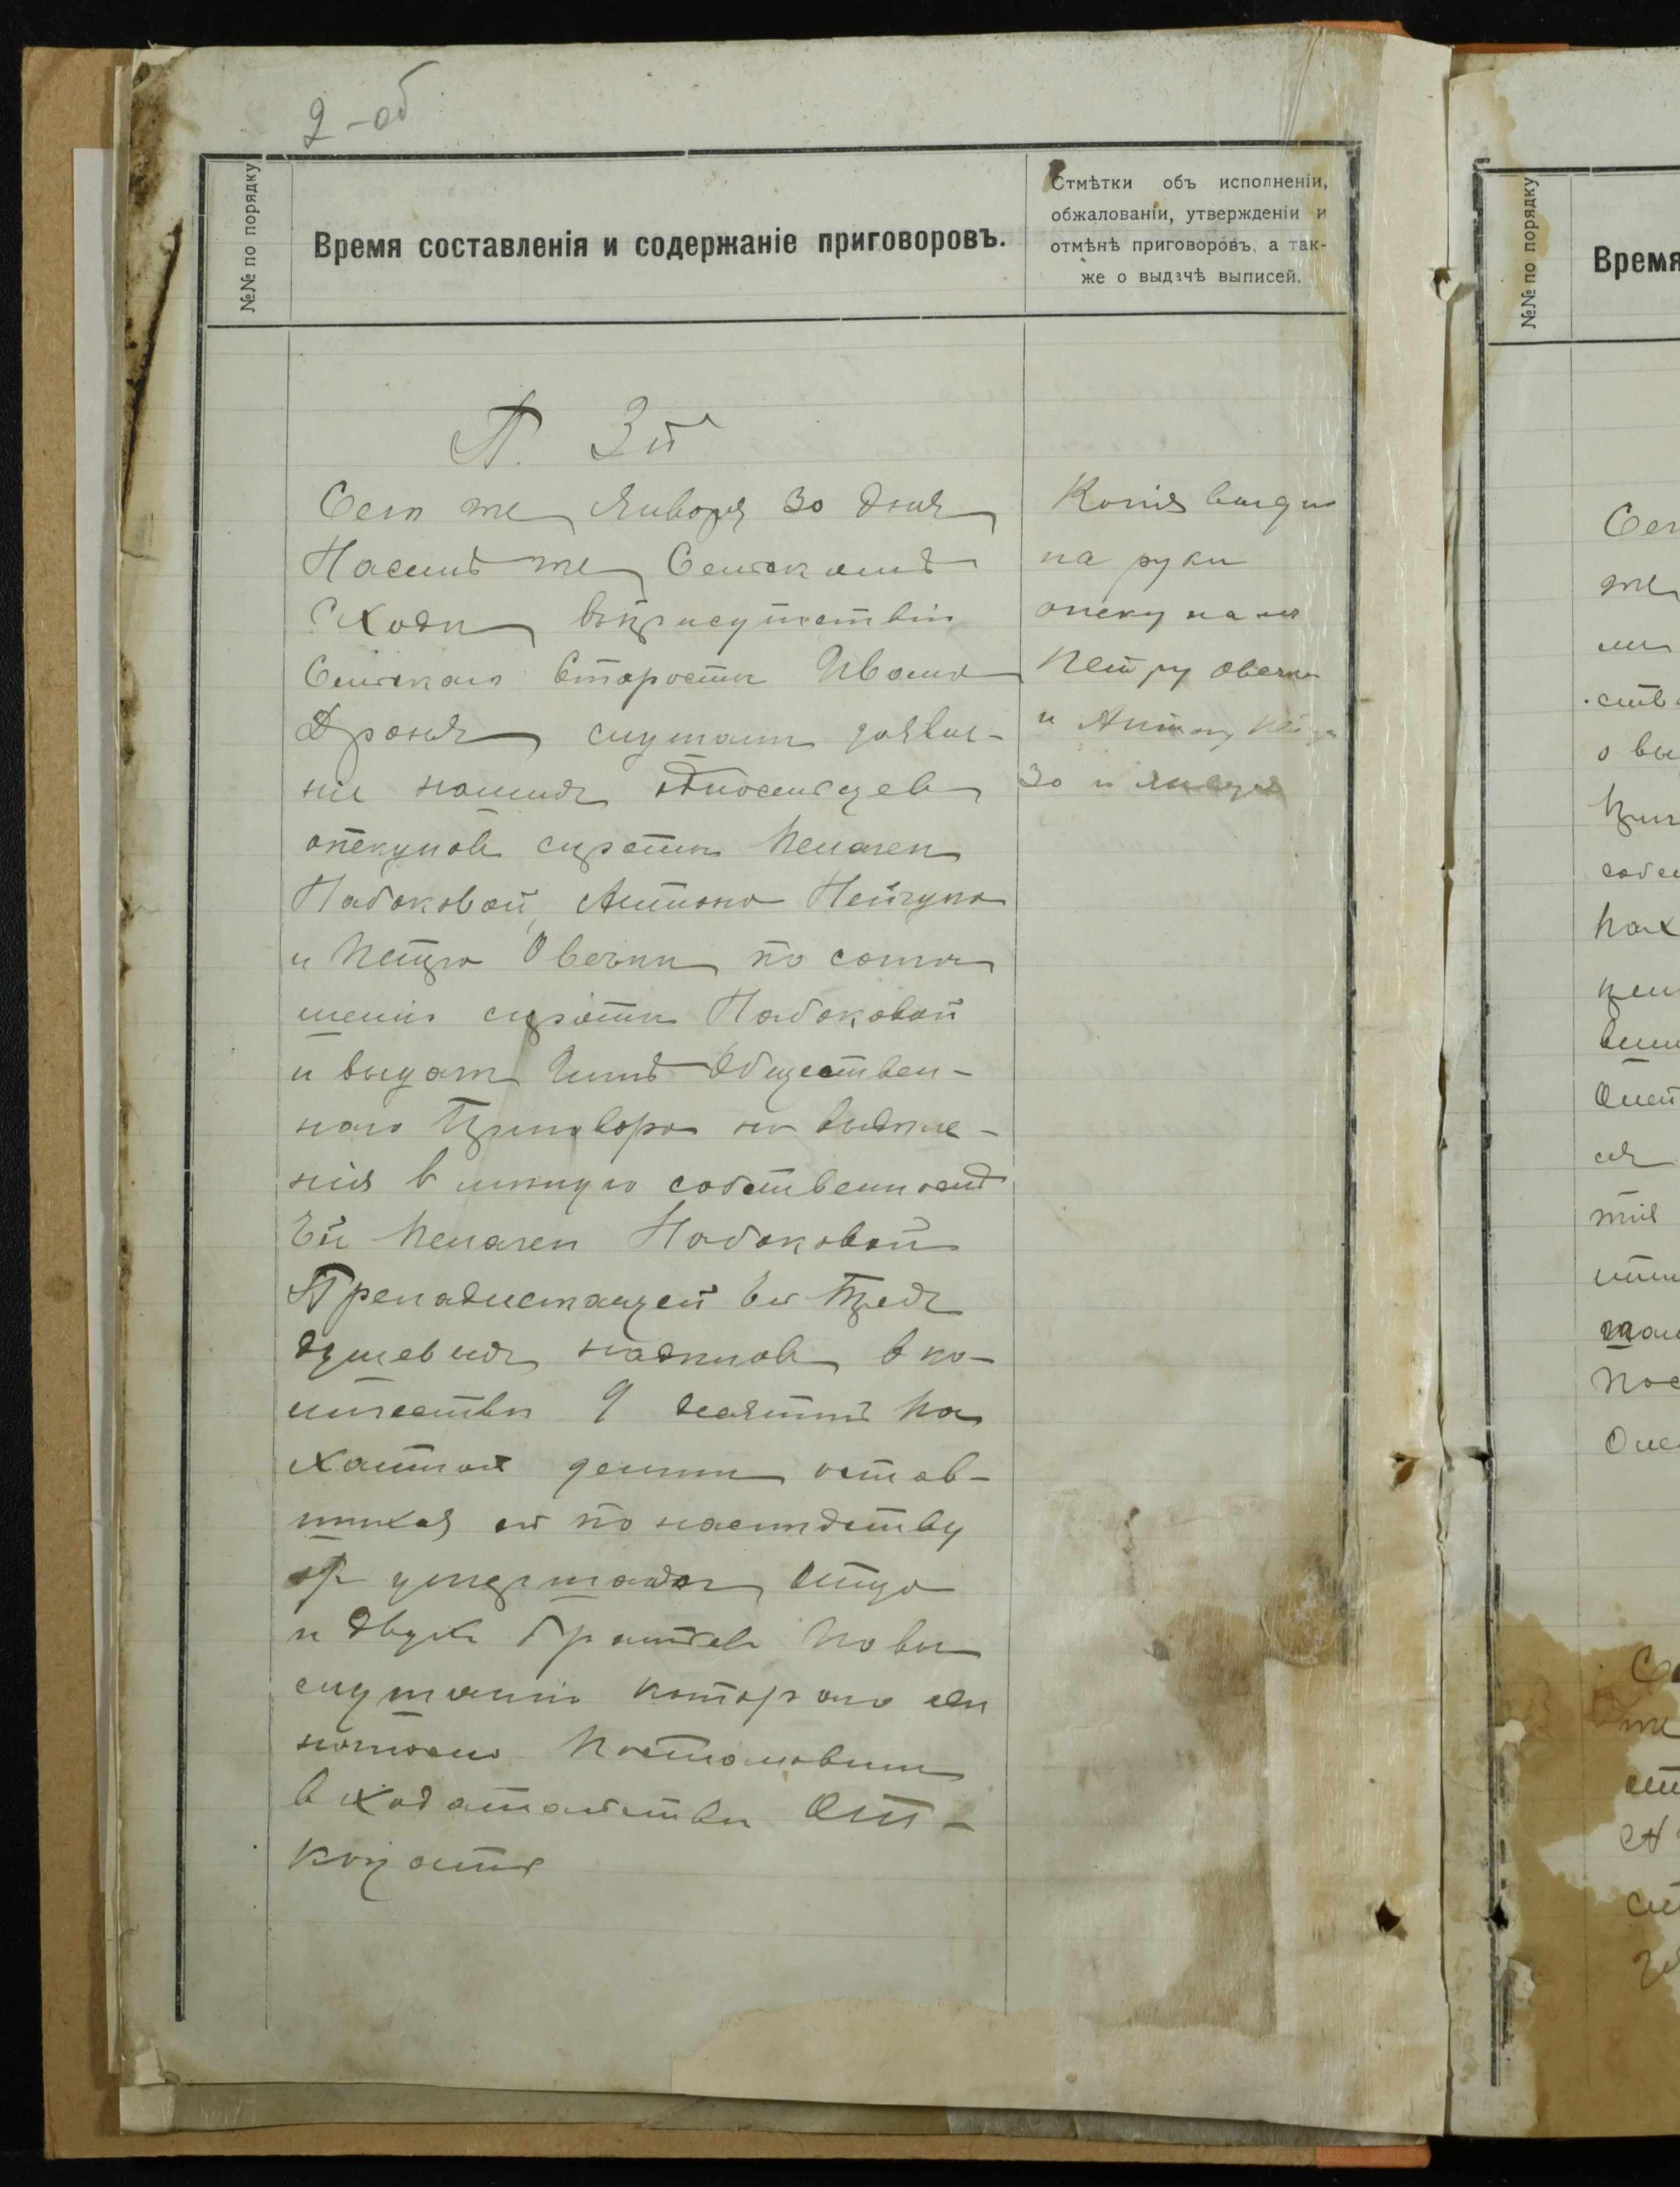 2-об
№№ по порядку
Время составленія и содержаніе приговоровъ.
Отмѣтки объ исполненіи,
обжалованіи, утвержденіи и
отмѣнѣ приговоровъ, а так-
же о выдачѣ выписей.
П. 3й
Сего же Января 30 дня
Насемъ же Сельскомъ
Сходи въприсутствіи
Сельскаго Старосты Ивана
Дроня слушали заявле-
ніе нашихъ Односельцев
опекунов сироты Пелагеи
Набоковой, Антона Нейчука
и Петра Овечки по
сироты Набоковой
и выдать Имъ Обществен-
наго Приговора на выдиле-
нія в личную собственность
Ей Пелагеи Набоковой
Пренадлежащей Ей Трех
душевых надилов в ко-
личестви 9 десятинъ Па
хатной земли остав-
шихся ей по наслидству
от умершаго Отца
и двух братьев По вы
слушаніи котораго
Постановили
в Ходатайстви От-
казать
Копія выдана
на руки
опекунам
Петру Овечки
и Антону
30 и Января
№№ по порядку
Время